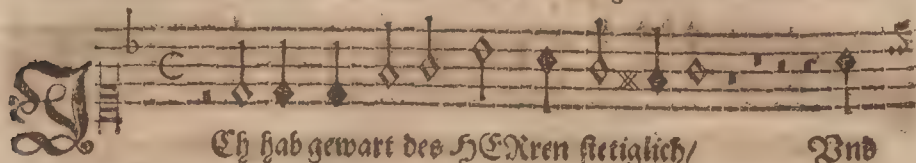 ICh hab gewart des HERren stetiglich/ Vnd